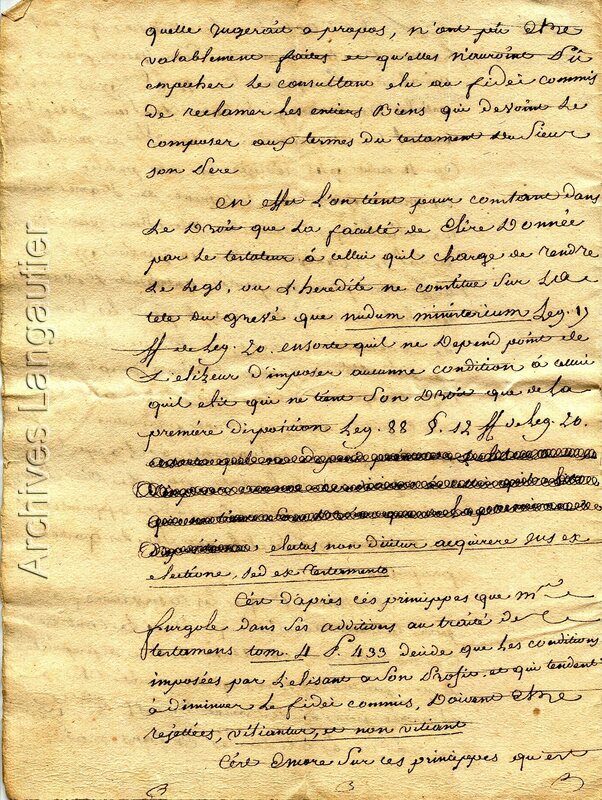 quelle Jugeroit a propos, n'ont pû etre
valablement faites et qu'elles n'auroint dû
empecher le consultant elu au fideicommis
de reclamer les entiers Biens qui devoint le
composer aux termes du testament du Sieur
son Pere
En effet l'on tient pour constant dans
le Droit que la faculté de Elire Donnée
par le testateur á cellui quil charge de rendre
le legs, ou l'heredité ne constitue sur la
tete du grevé que nudum ministerium Leg. 17
ff de leg. 20. ensorte quil ne Depend point de
L'elizeur d'imposer aucunne condition á cellui
quil elit qui ne tient son Droit que de la
premiére disposition Leg. 88 §. 12 ff de leg. 20.
electus non dicitur acquirere Jus ex
electione, sed ex testamento
C'ést d'aprés cés princippes que mre
furgole dans ses additions au traité de
testamens tom. 4 P. 433 decide que les conditions
imposées par l'elisant a son Profit, et qui tendent
á diminuer le fideicommis, Doivent etre
rejettées, vitiantur, et non vitiant
C'ést Encore sur ces princippes qu'est
Archives Langautier